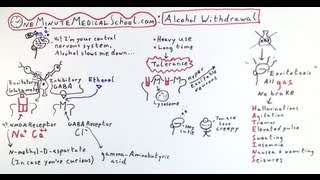 OneMinuteMedicalSchool.com: Alcohol Withdrawal
Hi! I'm your central
nervous system,
Alcohol slows me down...
Excitatory
Glutamate
Inhibitory
GABA
Ethanol
NMDA Receptor
Na+ Ca2+
GABA Receptor
Cl-
N-methyl-D-aspartate
(In case you're curious)
gamma-Aminobutyric
acid
• Heavy use
• Long time
Tolerance
Lysosome
Hyper
Excitable
Neurons
Hey
cutie
You are
sooo
creepy
Excitatosis
All gas
No brake
Hallucinations
Agitation
Tremor
Elevated pulse
Sweating
Insomnia
Nausea & vomiting
Seizures